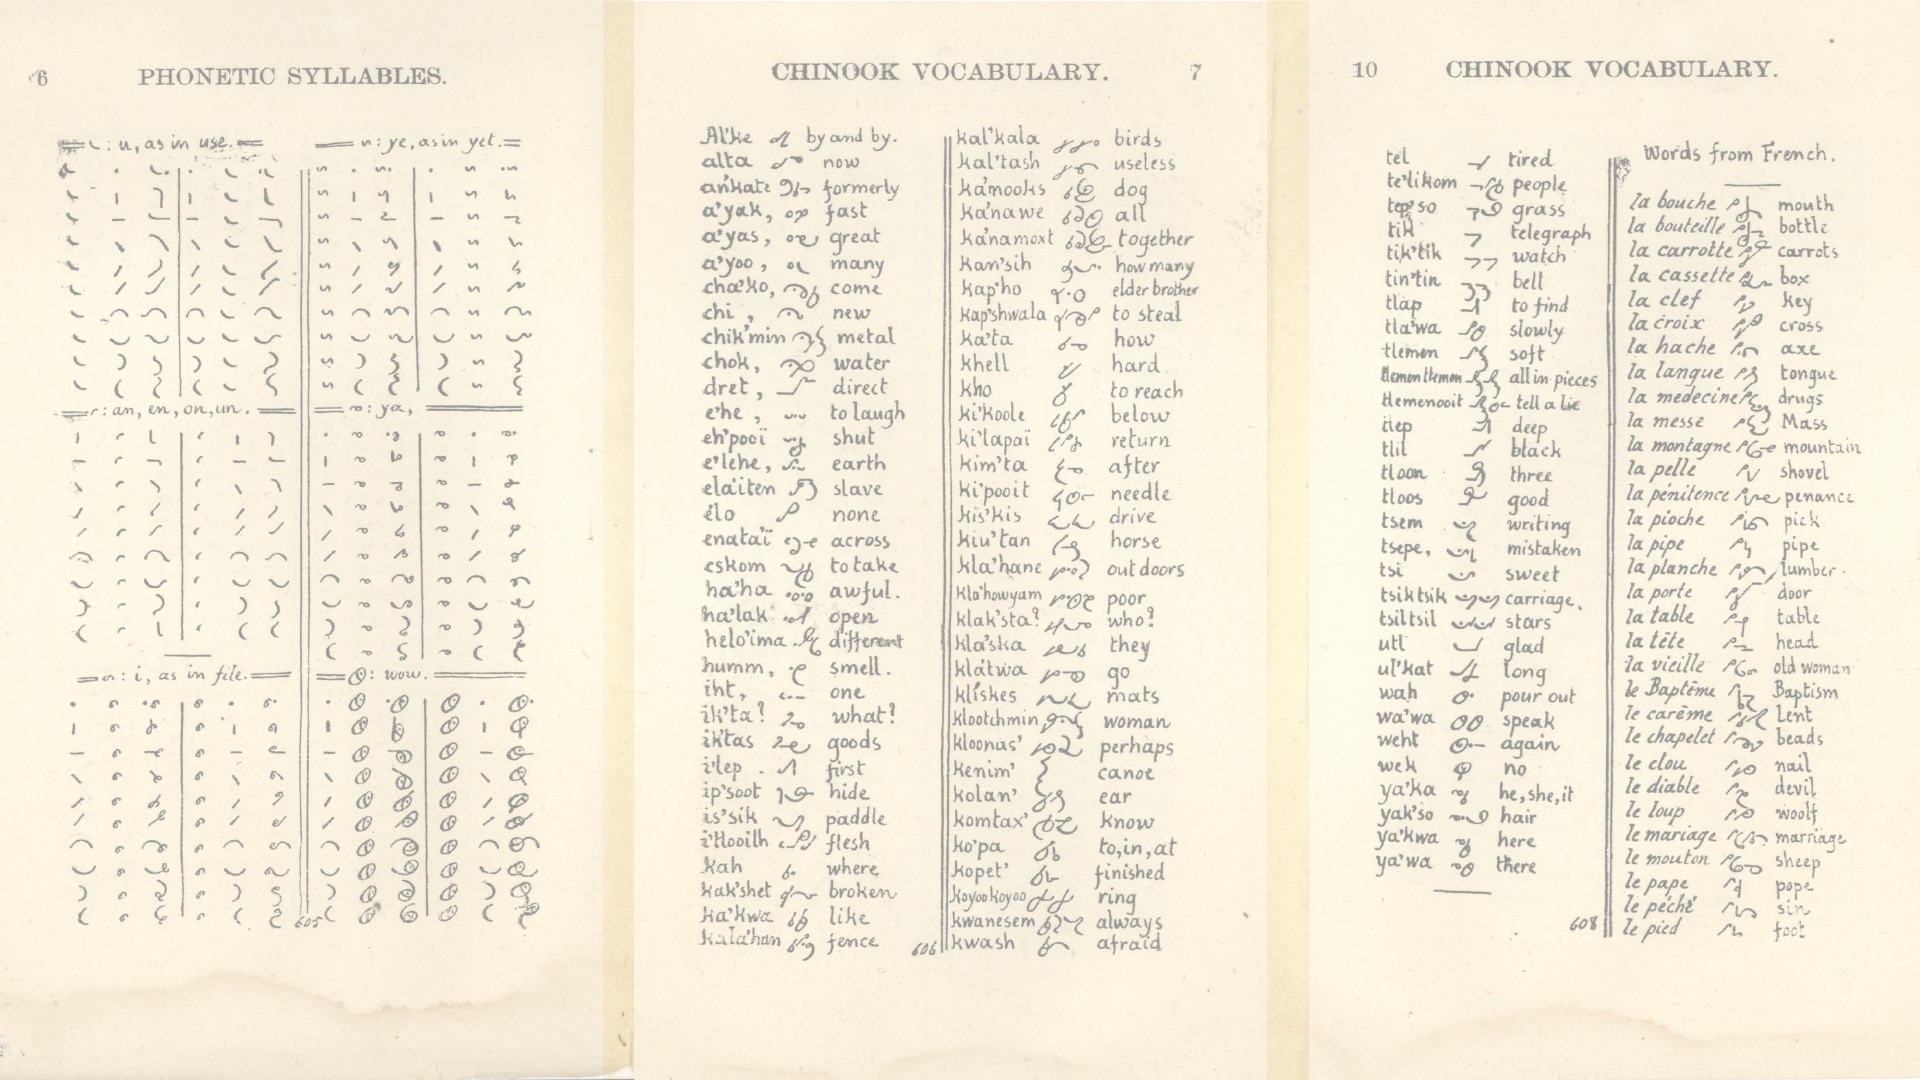 6 PHONETIC SYLLABLES.
: u, as in use.
: an, en, on, un.
: i, as in file.
: ye, as in yet.
: ya,
: wow.
605
CHINOOK VOCABULARY. 7
Al'ke by and by.
alta now
ankate formerly
a'yak, fast
a'yas, great
a'yoo, many
cha'ko, come
chi, new
chik'min metal
chok, water
dret, direct
e'he, to laugh
eh'pooï shut
e'lehe, earth
ela'iten slave
élo none
enataï across
eskom to take
ha'ha awful.
ha'lak open
helo'ima different
humm, smell.
iht, one
ik'ta? what?
iktas goods
i'lep first
ip'soot hide
is'sik paddle
i'tlooilh flesh
kah where
kak'shet broken
ka'kwa like
kala'han fence
606
kal'kala birds
kal'tash useless
ka'mooks dog
ka'nawe all
ka'namoxt together
kan'sih how many
kap'ho elder brother
kap'shwala to steal
ka'ta how
khell hard
kho to reach
ki'koole below
ki'lapaï return
kim'ta after
ki'pooit needle
kis'kis drive
kiu'tan horse
kla'hane outdoors
kla'howyam poor
klak'sta? who?
kla'ska they
klatwa go
kliskes mats
klootchmin woman
kloonas' perhaps
kenim' canoe
kolan' ear
komtax' know
ko'pa to, in, at
kopet' finished
koyookoyoo ring
kwanesem always
kwash afraid
10 CHINOOK VOCABULARY.
tel tired
te'likom people
tep'so grass
tik telegraph
tik'tik watch
tin'tin bell
tlap to find
tla'wa slowly
tlemen soft
tlemen tlemen all in pieces
tlemenooit tell a lie
tlep deep
tlil black
tloon three
tloos good
tsem writing
tsepe, mistaken
tsi sweet
tsiktsik carriage,
tsiltsil stars
utl glad
ul'kat long
wah pour out
wa'wa speak
weht again
wek no
ya'ka he, she, it
yak'so hair
ya'kwa here
ya'wa there
608
Words from French.
la bouche mouth
la bouteille bottle
la carrotte carrots
la cassette box
la clef key
la croix cross
la hache axe
la langue tongue
la medecine drugs
la messe Mass
la montagne mountain
la pelle shovel
la pénitence penance
la pioche pick
la pipe pipe
la planche lumber.
la porte door
la table table
la tête head
la vieille old woman
le Baptême Baptism
le carême Lent
le chapelet beads
le clou nail
le diable devil
le loup woolf
le mariage marriage
le mouton sheep
le pape pope
le péché sin
le pied foot